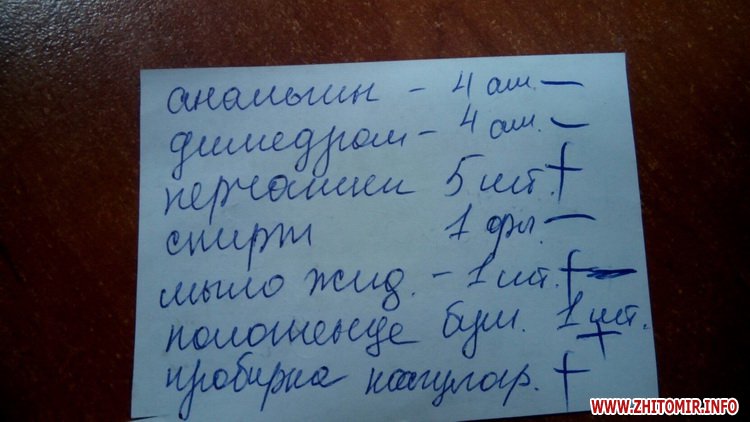 анальгин - 4 ам. —
димедрол - 4 ам. —
перчатки 5 шт. +
спирт 1 фл. —
мыло жид. - 1 шт. + —
полотенце бум. 1 шт.
+
пробирка коагуляр. +
WWW.ZHITOMIR.INFO